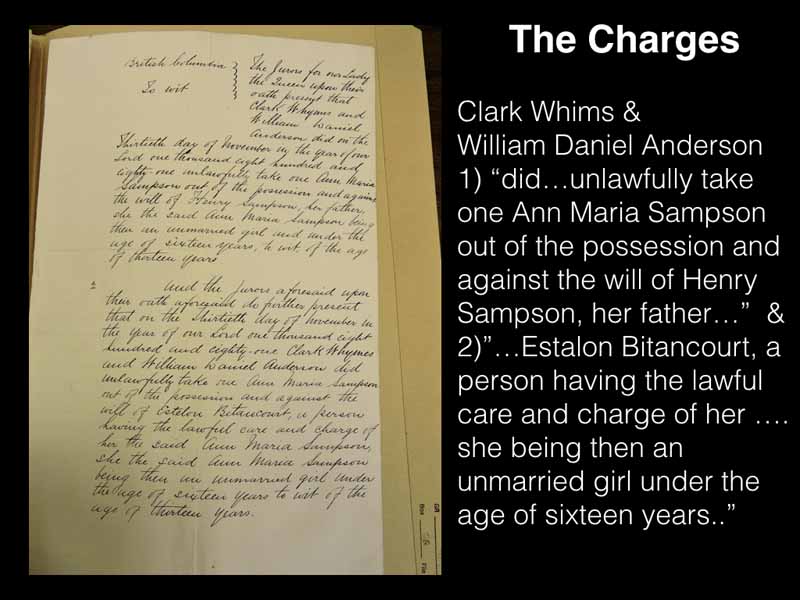 The Charges
British Columbia
To wit
The Jurors for our Lady
the Queen upon their
oath present that
Clark Whyms and
William Daniel
Anderson did on the
Thirtieth day of November in the year of our
Lord one thousand eight hundred and
eighty-one unlawfully take one Ann Maria
Sampson out of the possession and against
the will of Henry Sampson, her father,
she the said Ann Maria Sampson being
then an unmarried girl and under the
age of sixteen years, to wit of the age
of thirteen years
2
And the Jurors aforesaid upon
their oath aforesaid do further present
that on the Thirtieth day of November in
the year of our Lord one thousand eight
hundred and eighty-one Clark Whymes
and William Daniel Anderson did
unlawfully take one Ann Maria Sampson
out of the possession and against the
will of Estelon Bitancourt, a person
having the lawful care and charge of
her the said Ann Maria Sampson,
she the said Ann Maria Sampson
being then an unmarried girl under
the age of sixteen years to wit of the
age of thirteen years.
Box
File
Clark Whims &
William Daniel Anderson
1) “did…unlawfully take
one Ann Maria Sampson
out of the possession and
against the will of Henry
Sampson, her father…” &
2)”…Estalon Bitancourt, a
person having the lawful
care and charge of her ….
she being then an
unmarried girl under the
age of sixteen years..”